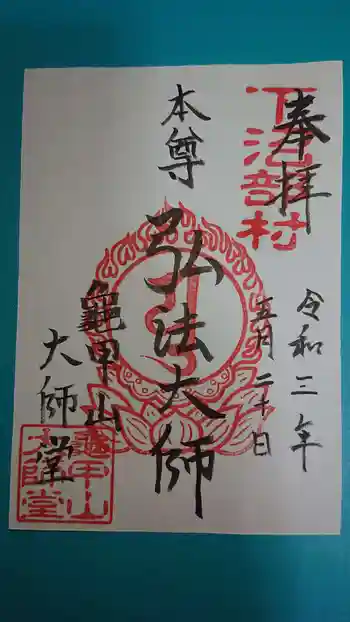 奉拝
下治部村
令和三年
五月二十日
本尊
弘法大師
龜甲山
大師堂
龜甲山
大師堂